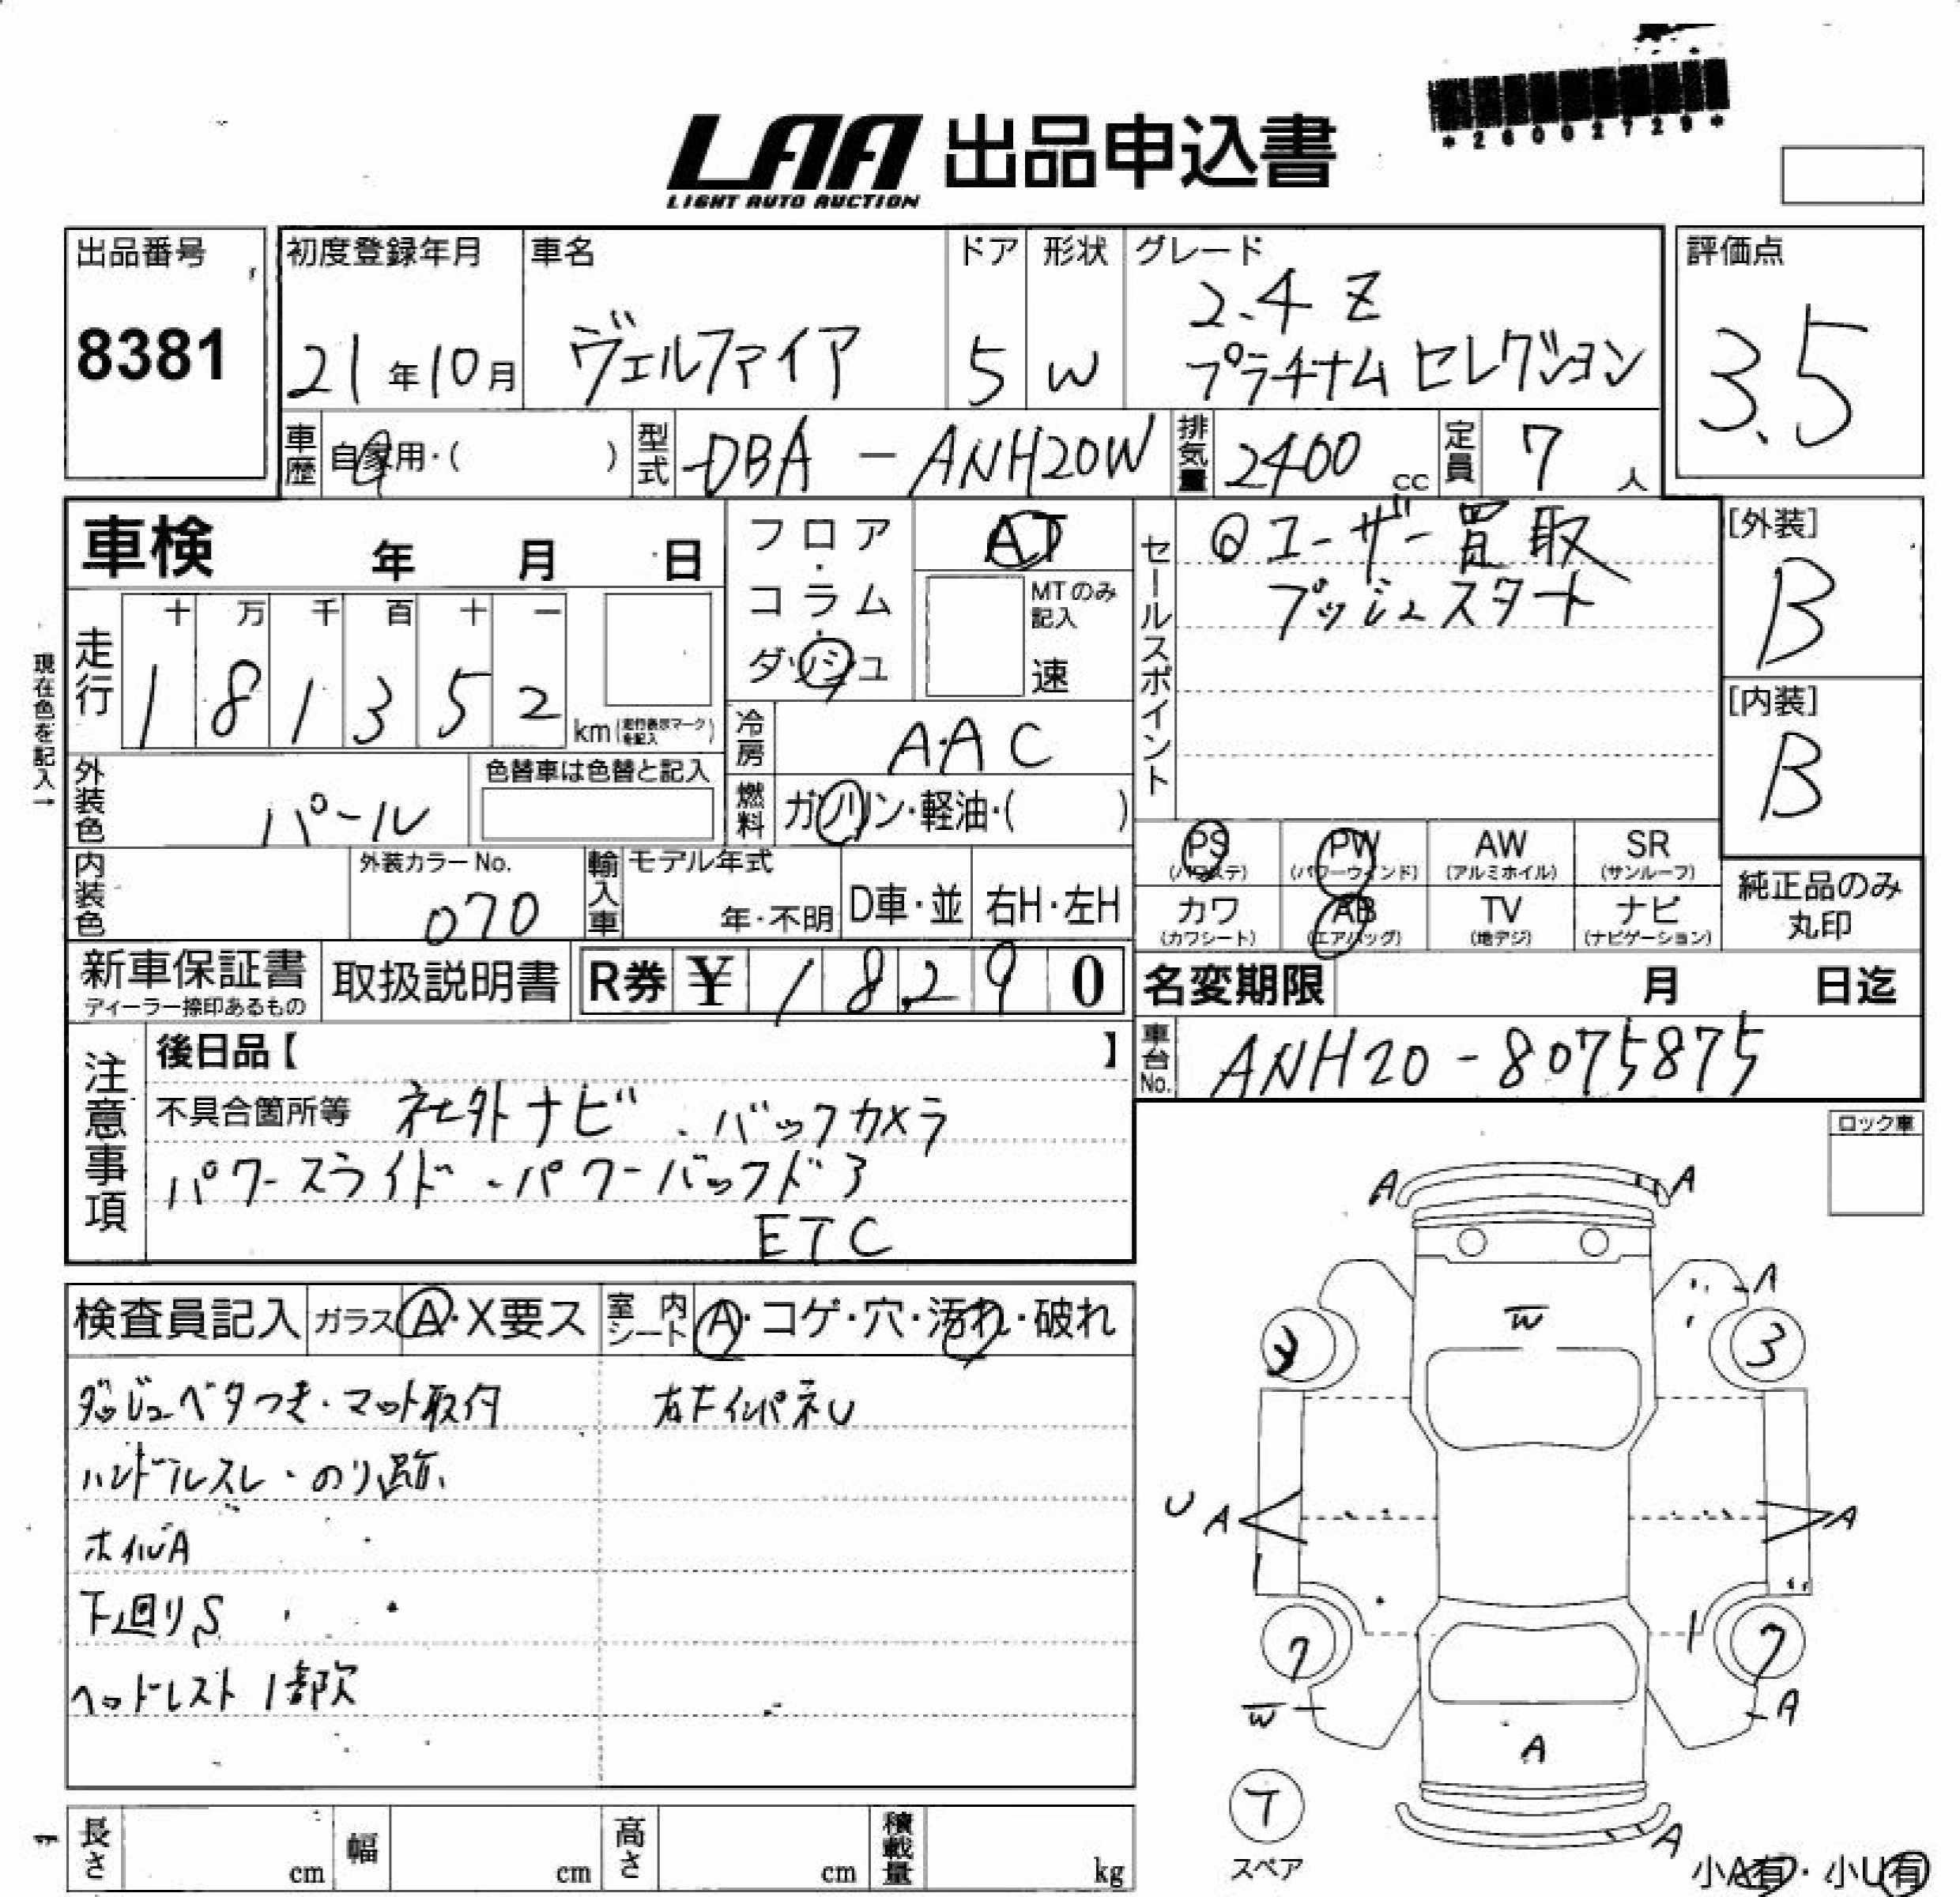 *26002729*
LAA 出品申込書
LIGHT AUTO AUCTION
出品番号
8381
初度登録年月
21年10月
車名
ヴェルファイア
ドア
5
形状
W
グレード
2.4 Z
プラチナム セレクション
評価点
3.5
車歴
自家用・( )
型式
DBA - ANH20W
排気量
2400 cc
定員
7 人
車検 年 月 日
フロア・コラム・ダッシュ
AT
MTのみ記入
速
セールスポイント
◎ユーザー買取
プッシュスタート
[外装]
B
[内装]
B
現在色を記入→
走行
十 万 千 百 十 一
1 8 1 3 5 2
km(走行表示マークを記入)
冷房
A.A C
外装色
パール
色替車は色替と記入
燃料
ガソリン・軽油・( )
PS
(パワステ)
PW
(パワーウインド)
AW
(アルミホイル)
SR
(サンルーフ)
カワ
(カワシート)
AB
(エアバッグ)
TV
(地デジ)
ナビ
(ナビゲーション)
純正品のみ
丸印
内装色
外装カラーNo.
070
輸入車
モデル年式
年・不明
D車・並
右H・左H
新車保証書
ディーラー捺印あるもの
取扱説明書
R券 ¥ 18,290
名変期限 月 日迄
車台No.
ANH20-8075875
注意事項
後日品【 】
不具合箇所等 社外ナビ . バックカメラ
パワースライド・パワーバックドア
ETC
ロック車
検査員記入
ガラス
A・X要ス
室内シート
A・コゲ・穴・汚れ・破れ
ダッシュベタつき・マット取付
右Fインパネ U
ハンドルスレ・のり跡
ホイルA
下回りS
ヘッドレスト1部欠
A A
A
W
3 3
U A A
7 7
W A
A
T
スペア
A
小A有・小U有
長さ cm
幅 cm
高さ cm
積載量 kg